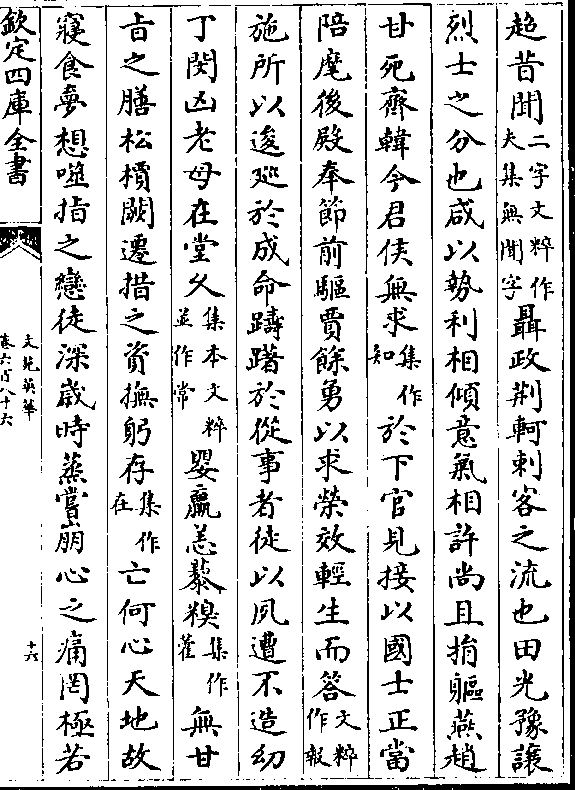 趂昔聞二字文粹作夫集無聞字聶政荆軻刺客之流也田光豫讓
烈士之分也咸以勢利相傾意氣相許尚且捐軀燕趙
甘死齊韓今君侯無求集作知於下官見接以國士正當
陪麾後殿奉節前驅賈餘勇以求榮效輕生而答文粹作報
施所以逡廵於成命躊躇於從事者徒以夙遭不造幼
丁閔凶老母在堂久集本文粹並作常嬰羸恙藜糗集作藿無甘
旨之膳松檟闕遷措之資撫躬存集作在亡何心天地故
寢食夢想噬指之戀徒深歲時蒸嘗崩心之痛罔極若
欽定四庫全書
文苑英華
卷六百八十六
十六